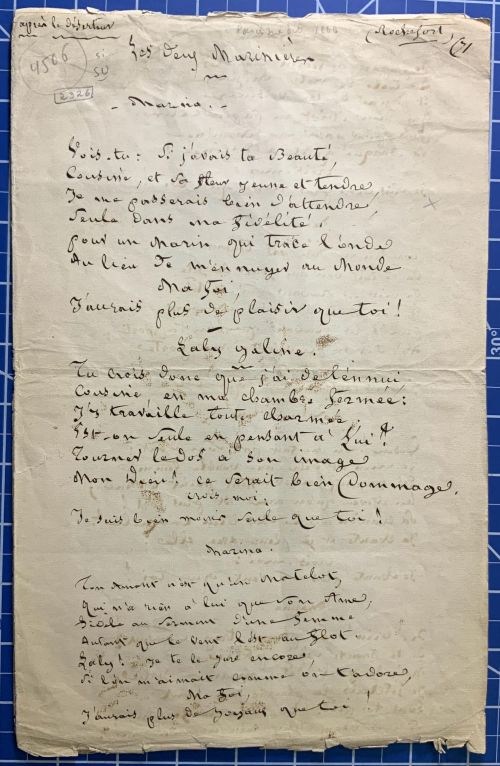 après le déserteur
(Rochefort)
4506
si
su
2326
Les Deux Marinières
- Marina. -
Vois-tu: si j'avais ta Beauté,
Cousine, et sa fleur jeune et tendre,
Je me passerais bien d'attendre,
Seule dans ma fidélité,
pour un Marin qui trace l'onde
Au lieu de m'ennuyer au Monde
Ma foi,
J'aurais plus de plaisir que toi!
Laly galine.
Tu crois donc que j'ai de l'ennui
Cousine en ma chambre fermée:
J'y travaille toute charmée,
Est-on seule en pensant à Lui?
Tourner le dos à son image
Mon Dieu! ce serait bien Dommage,
crois-moi,
Je suis bien moins seule que toi!
Marina.
Ton Amant n'est qu'un Matelot,
Qui n'a rien à lui que son Ame,
fidèle au serment d'une femme
Autant que le vent l'est au flot
Laly! Je te le jure encore,
Si l'on m'aimait comme on t'adore,
Ma foi,
J'aurais plus de joyaux que toi!